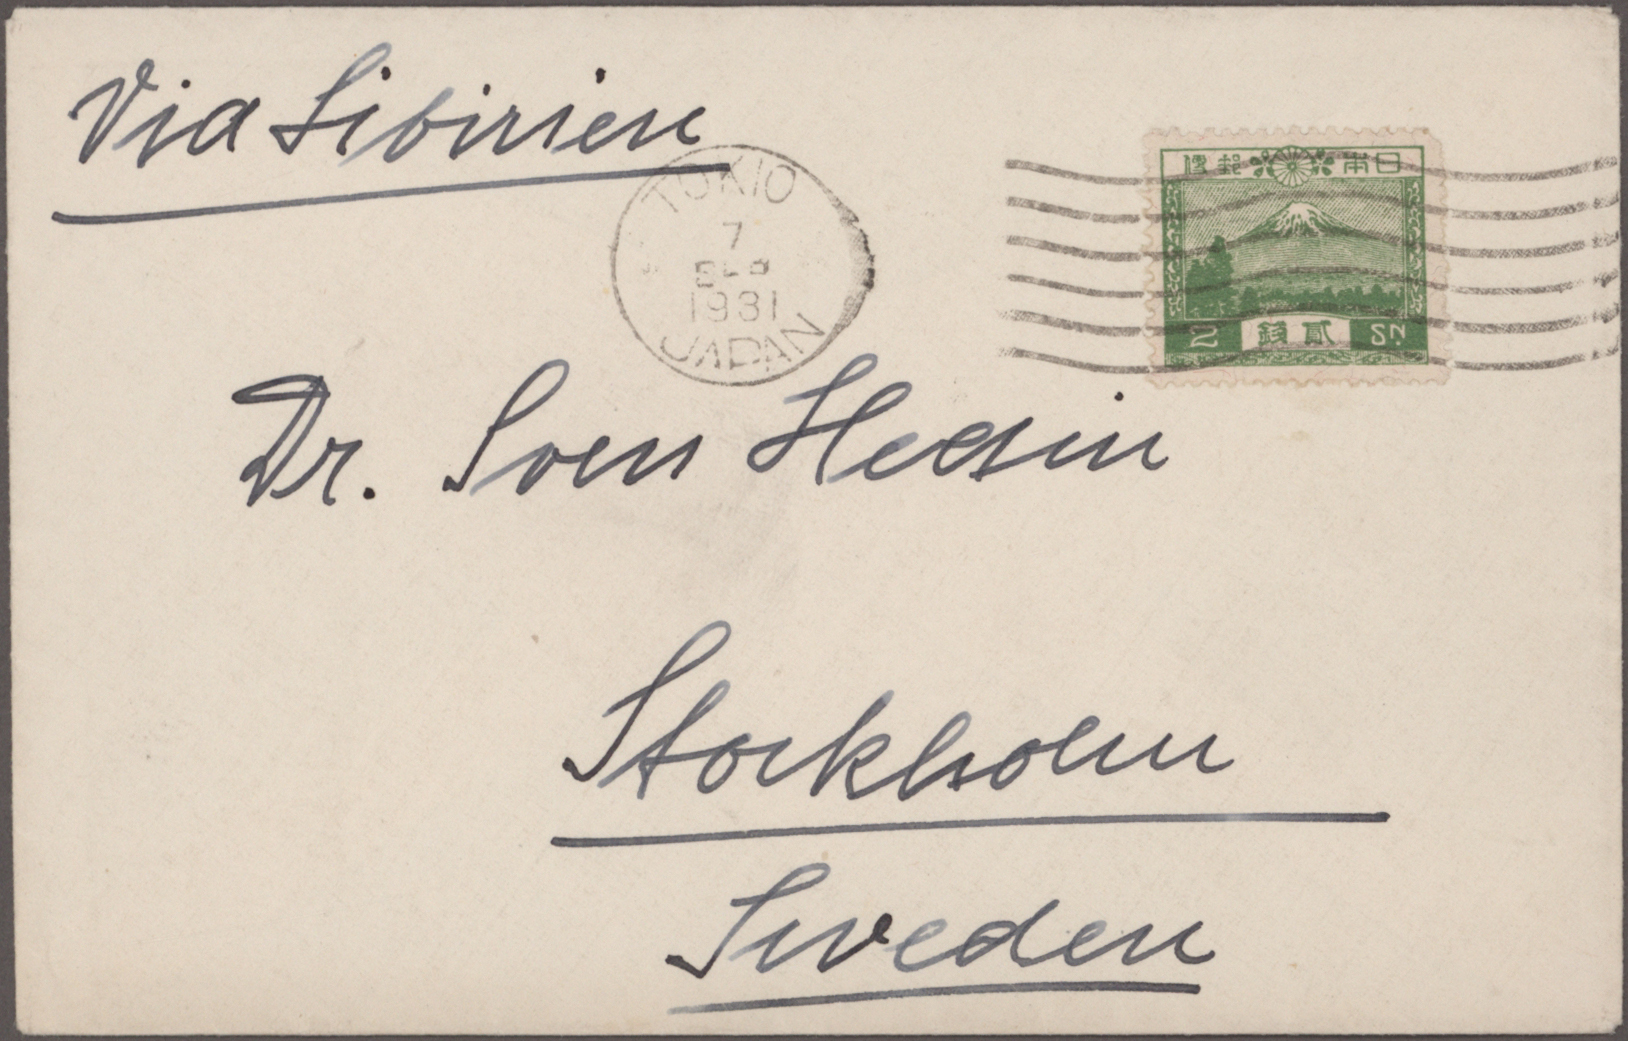 Via Sibirien
TOKIO
7
1931
JAPAN
日本郵便
2 貳錢 SN
Dr. Sven Hedin
Stockholm
Sweden